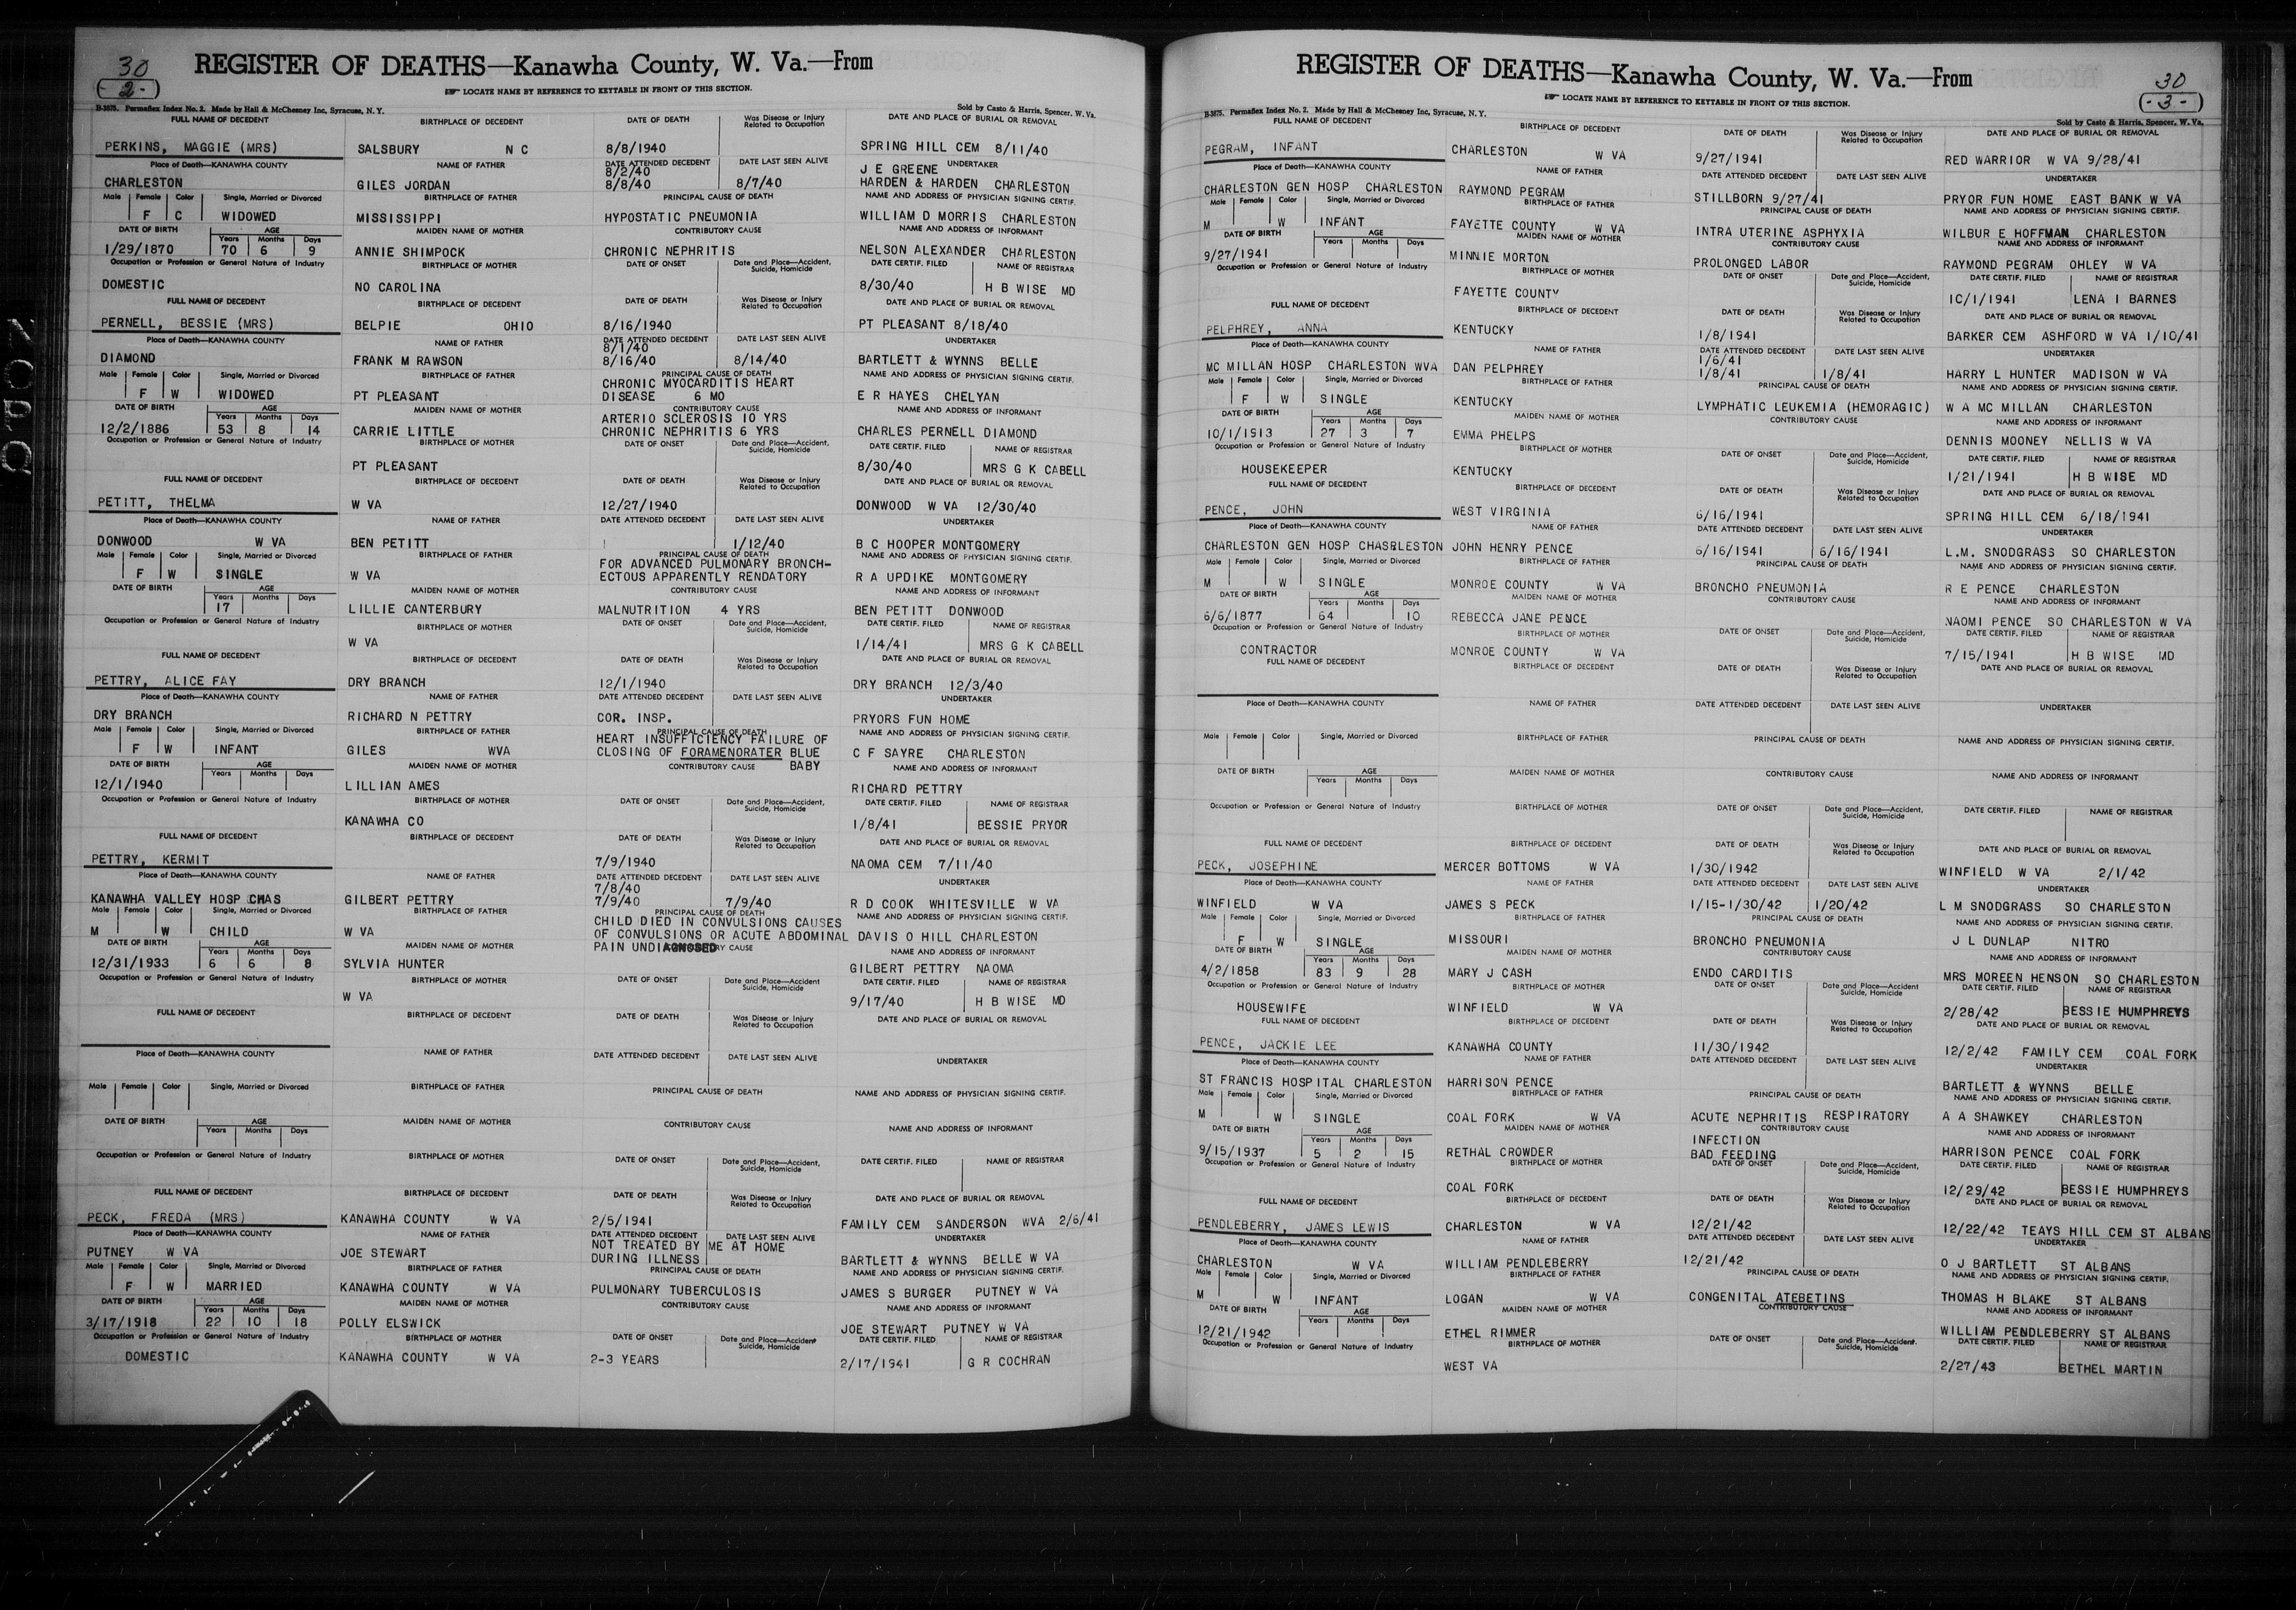 30
-2-
REGISTER OF DEATHS—Kanawha County, W. Va.—From
☞ LOCATE NAME BY REFERENCE TO KEYTABLE IN FRONT OF THIS SECTION.
B-3875. Permaflex Index No. 2. Made by Hall & McChesney Inc, Syracuse, N. Y. Sold by Casto & Harris, Spencer, W. Va.
FULL NAME OF DECEDENT BIRTHPLACE OF DECEDENT DATE OF DEATH Was Disease or Injury Related to Occupation DATE AND PLACE OF BURIAL OR REMOVAL
PERKINS, MAGGIE (MRS) SALSBURY N C 8/8/1940 SPRING HILL CEM 8/11/40
Place of Death—KANAWHA COUNTY NAME OF FATHER DATE ATTENDED DECEDENT DATE LAST SEEN ALIVE UNDERTAKER
8/2/40 J E GREENE
CHARLESTON GILES JORDAN 8/8/40 8/7/40 HARDEN & HARDEN CHARLESTON
Male Female Color Single, Married or Divorced BIRTHPLACE OF FATHER PRINCIPAL CAUSE OF DEATH NAME AND ADDRESS OF PHYSICIAN SIGNING CERTIF.
F C WIDOWED MISSISSIPPI HYPOSTATIC PNEUMONIA WILLIAM D MORRIS CHARLESTON
DATE OF BIRTH AGE Years Months Days MAIDEN NAME OF MOTHER CONTRIBUTORY CAUSE NAME AND ADDRESS OF INFORMANT
1/29/1870 70 6 9 ANNIE SHIMPOCK CHRONIC NEPHRITIS NELSON ALEXANDER CHARLESTON
Occupation or Profession or General Nature of Industry BIRTHPLACE OF MOTHER DATE OF ONSET Date and Place—Accident, Suicide, Homicide DATE CERTIF. FILED NAME OF REGISTRAR
DOMESTIC NO CAROLINA 8/30/40 H B WISE MD
FULL NAME OF DECEDENT BIRTHPLACE OF DECEDENT DATE OF DEATH Was Disease or Injury Related to Occupation DATE AND PLACE OF BURIAL OR REMOVAL
PERNELL, BESSIE (MRS) BELPIE OHIO 8/16/1940 PT PLEASANT 8/18/40
Place of Death—KANAWHA COUNTY NAME OF FATHER DATE ATTENDED DECEDENT DATE LAST SEEN ALIVE UNDERTAKER
8/1/40
DIAMOND FRANK M RAWSON 8/16/40 8/14/40 BARTLETT & WYNNS BELLE
Male Female Color Single, Married or Divorced BIRTHPLACE OF FATHER PRINCIPAL CAUSE OF DEATH NAME AND ADDRESS OF PHYSICIAN SIGNING CERTIF.
CHRONIC MYOCARDITIS HEART
F W WIDOWED PT PLEASANT DISEASE 6 MO E R HAYES CHELYAN
DATE OF BIRTH AGE Years Months Days MAIDEN NAME OF MOTHER CONTRIBUTORY CAUSE NAME AND ADDRESS OF INFORMANT
ARTERIO SCLEROSIS 10 YRS
12/2/1886 53 8 14 CARRIE LITTLE CHRONIC NEPHRITIS 6 YRS CHARLES PERNELL DIAMOND
Occupation or Profession or General Nature of Industry BIRTHPLACE OF MOTHER DATE OF ONSET Date and Place—Accident, Suicide, Homicide DATE CERTIF. FILED NAME OF REGISTRAR
PT PLEASANT 8/30/40 MRS G K CABELL
FULL NAME OF DECEDENT BIRTHPLACE OF DECEDENT DATE OF DEATH Was Disease or Injury Related to Occupation DATE AND PLACE OF BURIAL OR REMOVAL
PETITT, THELMA W VA 12/27/1940 DONWOOD W VA 12/30/40
Place of Death—KANAWHA COUNTY NAME OF FATHER DATE ATTENDED DECEDENT DATE LAST SEEN ALIVE UNDERTAKER
DONWOOD W VA BEN PETITT 1/12/40 B C HOOPER MONTGOMERY
Male Female Color Single, Married or Divorced BIRTHPLACE OF FATHER PRINCIPAL CAUSE OF DEATH NAME AND ADDRESS OF PHYSICIAN SIGNING CERTIF.
FOR ADVANCED PULMONARY BRONCH-
F W SINGLE W VA ECTOUS APPARENTLY RENDATORY R A UPDIKE MONTGOMERY
DATE OF BIRTH AGE Years Months Days MAIDEN NAME OF MOTHER CONTRIBUTORY CAUSE NAME AND ADDRESS OF INFORMANT
17 LILLIE CANTERBURY MALNUTRITION 4 YRS BEN PETITT DONWOOD
Occupation or Profession or General Nature of Industry BIRTHPLACE OF MOTHER DATE OF ONSET Date and Place—Accident, Suicide, Homicide DATE CERTIF. FILED NAME OF REGISTRAR
W VA 1/14/41 MRS G K CABELL
FULL NAME OF DECEDENT BIRTHPLACE OF DECEDENT DATE OF DEATH Was Disease or Injury Related to Occupation DATE AND PLACE OF BURIAL OR REMOVAL
PETTRY, ALICE FAY DRY BRANCH 12/1/1940 DRY BRANCH 12/3/40
Place of Death—KANAWHA COUNTY NAME OF FATHER DATE ATTENDED DECEDENT DATE LAST SEEN ALIVE UNDERTAKER
DRY BRANCH RICHARD N PETTRY COR. INSP. PRYORS FUN HOME
Male Female Color Single, Married or Divorced BIRTHPLACE OF FATHER PRINCIPAL CAUSE OF DEATH NAME AND ADDRESS OF PHYSICIAN SIGNING CERTIF.
HEART INSUFFICIENCY FAILURE OF
F W INFANT GILES WVA CLOSING OF FORAMENORATER BLUE C F SAYRE CHARLESTON
DATE OF BIRTH AGE Years Months Days MAIDEN NAME OF MOTHER CONTRIBUTORY CAUSE BABY NAME AND ADDRESS OF INFORMANT
12/1/1940 LILLIAN AMES RICHARD PETTRY
Occupation or Profession or General Nature of Industry BIRTHPLACE OF MOTHER DATE OF ONSET Date and Place—Accident, Suicide, Homicide DATE CERTIF. FILED NAME OF REGISTRAR
KANAWHA CO 1/8/41 BESSIE PRYOR
FULL NAME OF DECEDENT BIRTHPLACE OF DECEDENT DATE OF DEATH Was Disease or Injury Related to Occupation DATE AND PLACE OF BURIAL OR REMOVAL
PETTRY, KERMIT 7/9/1940 NAOMA CEM 7/11/40
Place of Death—KANAWHA COUNTY NAME OF FATHER DATE ATTENDED DECEDENT DATE LAST SEEN ALIVE UNDERTAKER
7/8/40
KANAWHA VALLEY HOSP CHAS GILBERT PETTRY 7/9/40 7/9/40 R D COOK WHITESVILLE W VA
Male Female Color Single, Married or Divorced BIRTHPLACE OF FATHER PRINCIPAL CAUSE OF DEATH NAME AND ADDRESS OF PHYSICIAN SIGNING CERTIF.
CHILD DIED IN CONVULSIONS CAUSES
M W CHILD W VA OF CONVULSIONS OR ACUTE ABDOMINAL DAVIS O HILL CHARLESTON
DATE OF BIRTH AGE Years Months Days MAIDEN NAME OF MOTHER PAIN UNDIAGNOSED CAUSE NAME AND ADDRESS OF INFORMANT
12/31/1933 6 6 8 SYLVIA HUNTER GILBERT PETTRY NAOMA
Occupation or Profession or General Nature of Industry BIRTHPLACE OF MOTHER DATE OF ONSET Date and Place—Accident Suicide, Homicide DATE CERTIF. FILED NAME OF REGISTRAR
W VA 9/17/40 H B WISE MD
FULL NAME OF DECEDENT BIRTHPLACE OF DECEDENT DATE OF DEATH Was Disease or Injury Related to Occupation DATE AND PLACE OF BURIAL OR REMOVAL
Place of Death—KANAWHA COUNTY NAME OF FATHER DATE ATTENDED DECEDENT DATE LAST SEEN ALIVE UNDERTAKER
Male Female Color Single, Married or Divorced BIRTHPLACE OF FATHER PRINCIPAL CAUSE OF DEATH NAME AND ADDRESS OF PHYSICIAN SIGNING CERTIF.
DATE OF BIRTH AGE Years Months Days MAIDEN NAME OF MOTHER CONTRIBUTORY CAUSE NAME AND ADDRESS OF INFORMANT
Occupation or Profession or General Nature of Industry BIRTHPLACE OF MOTHER DATE OF ONSET Date and Place—Accident, Suicide, Homicide DATE CERTIF. FILED NAME OF REGISTRAR
FULL NAME OF DECEDENT BIRTHPLACE OF DECEDENT DATE OF DEATH Was Disease or Injury Related to Occupation DATE AND PLACE OF BURIAL OR REMOVAL
PECK, FREDA (MRS) KANAWHA COUNTY W VA 2/5/1941 FAMILY CEM SANDERSON WVA 2/6/41
Place of Death—KANAWHA COUNTY NAME OF FATHER DATE ATTENDED DECEDENT DATE LAST SEEN ALIVE UNDERTAKER
NOT TREATED BY ME AT HOME
PUTNEY W VA JOE STEWART DURING ILLNESS BARTLETT & WYNNS BELLE W VA
Male Female Color Single, Married or Divorced BIRTHPLACE OF FATHER PRINCIPAL CAUSE OF DEATH NAME AND ADDRESS OF PHYSICIAN SIGNING CERTIF.
F W MARRIED KANAWHA COUNTY W VA PULMONARY TUBERCULOSIS JAMES S BURGER PUTNEY W VA
DATE OF BIRTH AGE Years Months Days MAIDEN NAME OF MOTHER CONTRIBUTORY CAUSE NAME AND ADDRESS OF INFORMANT
3/17/1918 22 10 18 POLLY ELSWICK JOE STEWART PUTNEY W VA
Occupation or Profession or General Nature of Industry BIRTHPLACE OF MOTHER DATE OF ONSET Date and Place—Accident Suicide, Homicide DATE CERTIF. FILED NAME OF REGISTRAR
DOMESTIC KANAWHA COUNTY W VA 2-3 YEARS 2/17/1941 G R COCHRAN
30
-3-
REGISTER OF DEATHS—Kanawha County, W. Va.—From
☞ LOCATE NAME BY REFERENCE TO KEYTABLE IN FRONT OF THIS SECTION.
B-3875. Permaflex Index No. 2. Made by Hall & McChesney Inc, Syracuse, N. Y. Sold by Casto & Harris, Spencer, W. Va.
FULL NAME OF DECEDENT BIRTHPLACE OF DECEDENT DATE OF DEATH Was Disease or Injury Related to Occupation DATE AND PLACE OF BURIAL OR REMOVAL
PEGRAM, INFANT CHARLESTON W VA 9/27/1941 RED WARRIOR W VA 9/28/41
Place of Death—KANAWHA COUNTY NAME OF FATHER DATE ATTENDED DECEDENT DATE LAST SEEN ALIVE UNDERTAKER
CHARLESTON GEN HOSP CHARLESTON RAYMOND PEGRAM STILLBORN 9/27/41 PRYOR FUN HOME EAST BANK W VA
Male Female Color Single, Married or Divorced BIRTHPLACE OF FATHER PRINCIPAL CAUSE OF DEATH NAME AND ADDRESS OF PHYSICIAN SIGNING CERTIF.
M W INFANT FAYETTE COUNTY W VA INTRA UTERINE ASPHYXIA WILBUR E HOFFMAN CHARLESTON
DATE OF BIRTH AGE Years Months Days MAIDEN NAME OF MOTHER CONTRIBUTORY CAUSE NAME AND ADDRESS OF INFORMANT
9/27/1941 MINNIE MORTON PROLONGED LABOR RAYMOND PEGRAM OHLEY W VA
Occupation or Profession or General Nature of Industry BIRTHPLACE OF MOTHER DATE OF ONSET Date and Place—Accident, Suicide, Homicide DATE CERTIF. FILED NAME OF REGISTRAR
FAYETTE COUNTY 10/1/1941 LENA I BARNES
FULL NAME OF DECEDENT BIRTHPLACE OF DECEDENT DATE OF DEATH Was Disease or Injury Related to Occupation DATE AND PLACE OF BURIAL OR REMOVAL
PELPHREY, ANNA KENTUCKY 1/8/1941 BARKER CEM ASHFORD W VA 1/10/41
Place of Death—KANAWHA COUNTY NAME OF FATHER DATE ATTENDED DECEDENT DATE LAST SEEN ALIVE UNDERTAKER
1/6/41
MC MILLAN HOSP CHARLESTON WVA DAN PELPHREY 1/8/41 1/8/41 HARRY L HUNTER MADISON W VA
Male Female Color Single, Married or Divorced BIRTHPLACE OF FATHER PRINCIPAL CAUSE OF DEATH NAME AND ADDRESS OF PHYSICIAN SIGNING CERTIF.
F W SINGLE KENTUCKY LYMPHATIC LEUKEMIA (HEMORAGIC) W A MC MILLAN CHARLESTON
DATE OF BIRTH AGE Years Months Days MAIDEN NAME OF MOTHER CONTRIBUTORY CAUSE NAME AND ADDRESS OF INFORMANT
10/1/1913 27 3 7 EMMA PHELPS DENNIS MOONEY NELLIS W VA
Occupation or Profession or General Nature of Industry BIRTHPLACE OF MOTHER DATE OF ONSET Date and Place—Accident, Suicide, Homicide DATE CERTIF. FILED NAME OF REGISTRAR
HOUSEKEEPER KENTUCKY 1/21/1941 H B WISE MD
FULL NAME OF DECEDENT BIRTHPLACE OF DECEDENT DATE OF DEATH Was Disease or Injury Related to Occupation DATE AND PLACE OF BURIAL OR REMOVAL
PENCE, JOHN WEST VIRGINIA 6/16/1941 SPRING HILL CEM 6/18/1941
Place of Death—KANAWHA COUNTY NAME OF FATHER DATE ATTENDED DECEDENT DATE LAST SEEN ALIVE UNDERTAKER
CHARLESTON GEN HOSP CHASRLESTON JOHN HENRY PENCE 6/16/1941 6/16/1941 L.M. SNODGRASS SO CHARLESTON
Male Female Color Single, Married or Divorced BIRTHPLACE OF FATHER PRINCIPAL CAUSE OF DEATH NAME AND ADDRESS OF PHYSICIAN SIGNING CERTIF.
M W SINGLE MONROE COUNTY W VA BRONCHO PNEUMONIA R E PENCE CHARLESTON
DATE OF BIRTH AGE Years Months Days MAIDEN NAME OF MOTHER CONTRIBUTORY CAUSE NAME AND ADDRESS OF INFORMANT
6/6/1877 64 10 REBECCA JANE PENCE NAOMI PENCE SO CHARLESTON W VA
Occupation or Profession or General Nature of Industry BIRTHPLACE OF MOTHER DATE OF ONSET Date and Place—Accident, Suicide, Homicide DATE CERTIF. FILED NAME OF REGISTRAR
CONTRACTOR MONROE COUNTY W VA 7/15/1941 H B WISE MD
FULL NAME OF DECEDENT BIRTHPLACE OF DECEDENT DATE OF DEATH Was Disease or Injury Related to Occupation DATE AND PLACE OF BURIAL OR REMOVAL
Place of Death—KANAWHA COUNTY NAME OF FATHER DATE ATTENDED DECEDENT DATE LAST SEEN ALIVE UNDERTAKER
Male Female Color Single, Married or Divorced BIRTHPLACE OF FATHER PRINCIPAL CAUSE OF DEATH NAME AND ADDRESS OF PHYSICIAN SIGNING CERTIF.
DATE OF BIRTH AGE Years Months Days MAIDEN NAME OF MOTHER CONTRIBUTORY CAUSE NAME AND ADDRESS OF INFORMANT
Occupation or Profession or General Nature of Industry BIRTHPLACE OF MOTHER DATE OF ONSET Date and Place—Accident, Suicide, Homicide DATE CERTIF. FILED NAME OF REGISTRAR
FULL NAME OF DECEDENT BIRTHPLACE OF DECEDENT DATE OF DEATH Was Disease or Injury Related to Occupation DATE AND PLACE OF BURIAL OR REMOVAL
PECK, JOSEPHINE MERCER BOTTOMS W VA 1/30/1942 WINFIELD W VA 2/1/42
Place of Death—KANAWHA COUNTY NAME OF FATHER DATE ATTENDED DECEDENT DATE LAST SEEN ALIVE UNDERTAKER
WINFIELD W VA JAMES S PECK 1/15-1/30/42 1/20/42 L M SNODGRASS SO CHARLESTON
Male Female Color Single, Married or Divorced BIRTHPLACE OF FATHER PRINCIPAL CAUSE OF DEATH NAME AND ADDRESS OF PHYSICIAN SIGNING CERTIF.
F W SINGLE MISSOURI BRONCHO PNEUMONIA J L DUNLAP NITRO
DATE OF BIRTH AGE Years Months Days MAIDEN NAME OF MOTHER CONTRIBUTORY CAUSE NAME AND ADDRESS OF INFORMANT
4/2/1858 83 9 28 MARY J CASH ENDO CARDITIS MRS MOREEN HENSON SO CHARLESTON
Occupation or Profession or General Nature of Industry BIRTHPLACE OF MOTHER DATE OF ONSET Date and Place—Accident Suicide, Homicide DATE CERTIF. FILED NAME OF REGISTRAR
HOUSEWIFE WINFIELD W VA 2/28/42 BESSIE HUMPHREYS
FULL NAME OF DECEDENT BIRTHPLACE OF DECEDENT DATE OF DEATH Was Disease or Injury Related to Occupation DATE AND PLACE OF BURIAL OR REMOVAL
PENCE, JACKIE LEE KANAWHA COUNTY 11/30/1942 12/2/42 FAMILY CEM COAL FORK
Place of Death—KANAWHA COUNTY NAME OF FATHER DATE ATTENDED DECEDENT DATE LAST SEEN ALIVE UNDERTAKER
ST FRANCIS HOSPITAL CHARLESTON HARRISON PENCE BARTLETT & WYNNS BELLE
Male Female Color Single, Married or Divorced BIRTHPLACE OF FATHER PRINCIPAL CAUSE OF DEATH NAME AND ADDRESS OF PHYSICIAN SIGNING CERTIF.
M W SINGLE COAL FORK W VA ACUTE NEPHRITIS RESPIRATORY A A SHAWKEY CHARLESTON
DATE OF BIRTH AGE Years Months Days MAIDEN NAME OF MOTHER CONTRIBUTORY CAUSE NAME AND ADDRESS OF INFORMANT
INFECTION
9/15/1937 5 2 15 RETHAL CROWDER BAD FEEDING HARRISON PENCE COAL FORK
Occupation or Profession or General Nature of Industry BIRTHPLACE OF MOTHER DATE OF ONSET Date and Place—Accident, Suicide, Homicide DATE CERTIF. FILED NAME OF REGISTRAR
COAL FORK 12/29/42 BESSIE HUMPHREYS
FULL NAME OF DECEDENT BIRTHPLACE OF DECEDENT DATE OF DEATH Was Disease or Injury Related to Occupation DATE AND PLACE OF BURIAL OR REMOVAL
PENDLEBERRY, JAMES LEWIS CHARLESTON W VA 12/21/42 12/22/42 TEAYS HILL CEM ST ALBANS
Place of Death—KANAWHA COUNTY NAME OF FATHER DATE ATTENDED DECEDENT DATE LAST SEEN ALIVE UNDERTAKER
CHARLESTON W VA WILLIAM PENDLEBERRY 12/21/42 O J BARTLETT ST ALBANS
Male Female Color Single, Married or Divorced BIRTHPLACE OF FATHER PRINCIPAL CAUSE OF DEATH NAME AND ADDRESS OF PHYSICIAN SIGNING CERTIF.
M W INFANT LOGAN W VA CONGENITAL ATEBETINS THOMAS H BLAKE ST ALBANS
DATE OF BIRTH AGE Years Months Days MAIDEN NAME OF MOTHER CONTRIBUTORY CAUSE NAME AND ADDRESS OF INFORMANT
12/21/1942 ETHEL RIMMER WILLIAM PENDLEBERRY ST ALBANS
Occupation or Profession or General Nature of Industry BIRTHPLACE OF MOTHER DATE OF ONSET Date and Place—Accident. Suicide, Homicide DATE CERTIF. FILED NAME OF REGISTRAR
WEST VA 2/27/43 BETHEL MARTIN